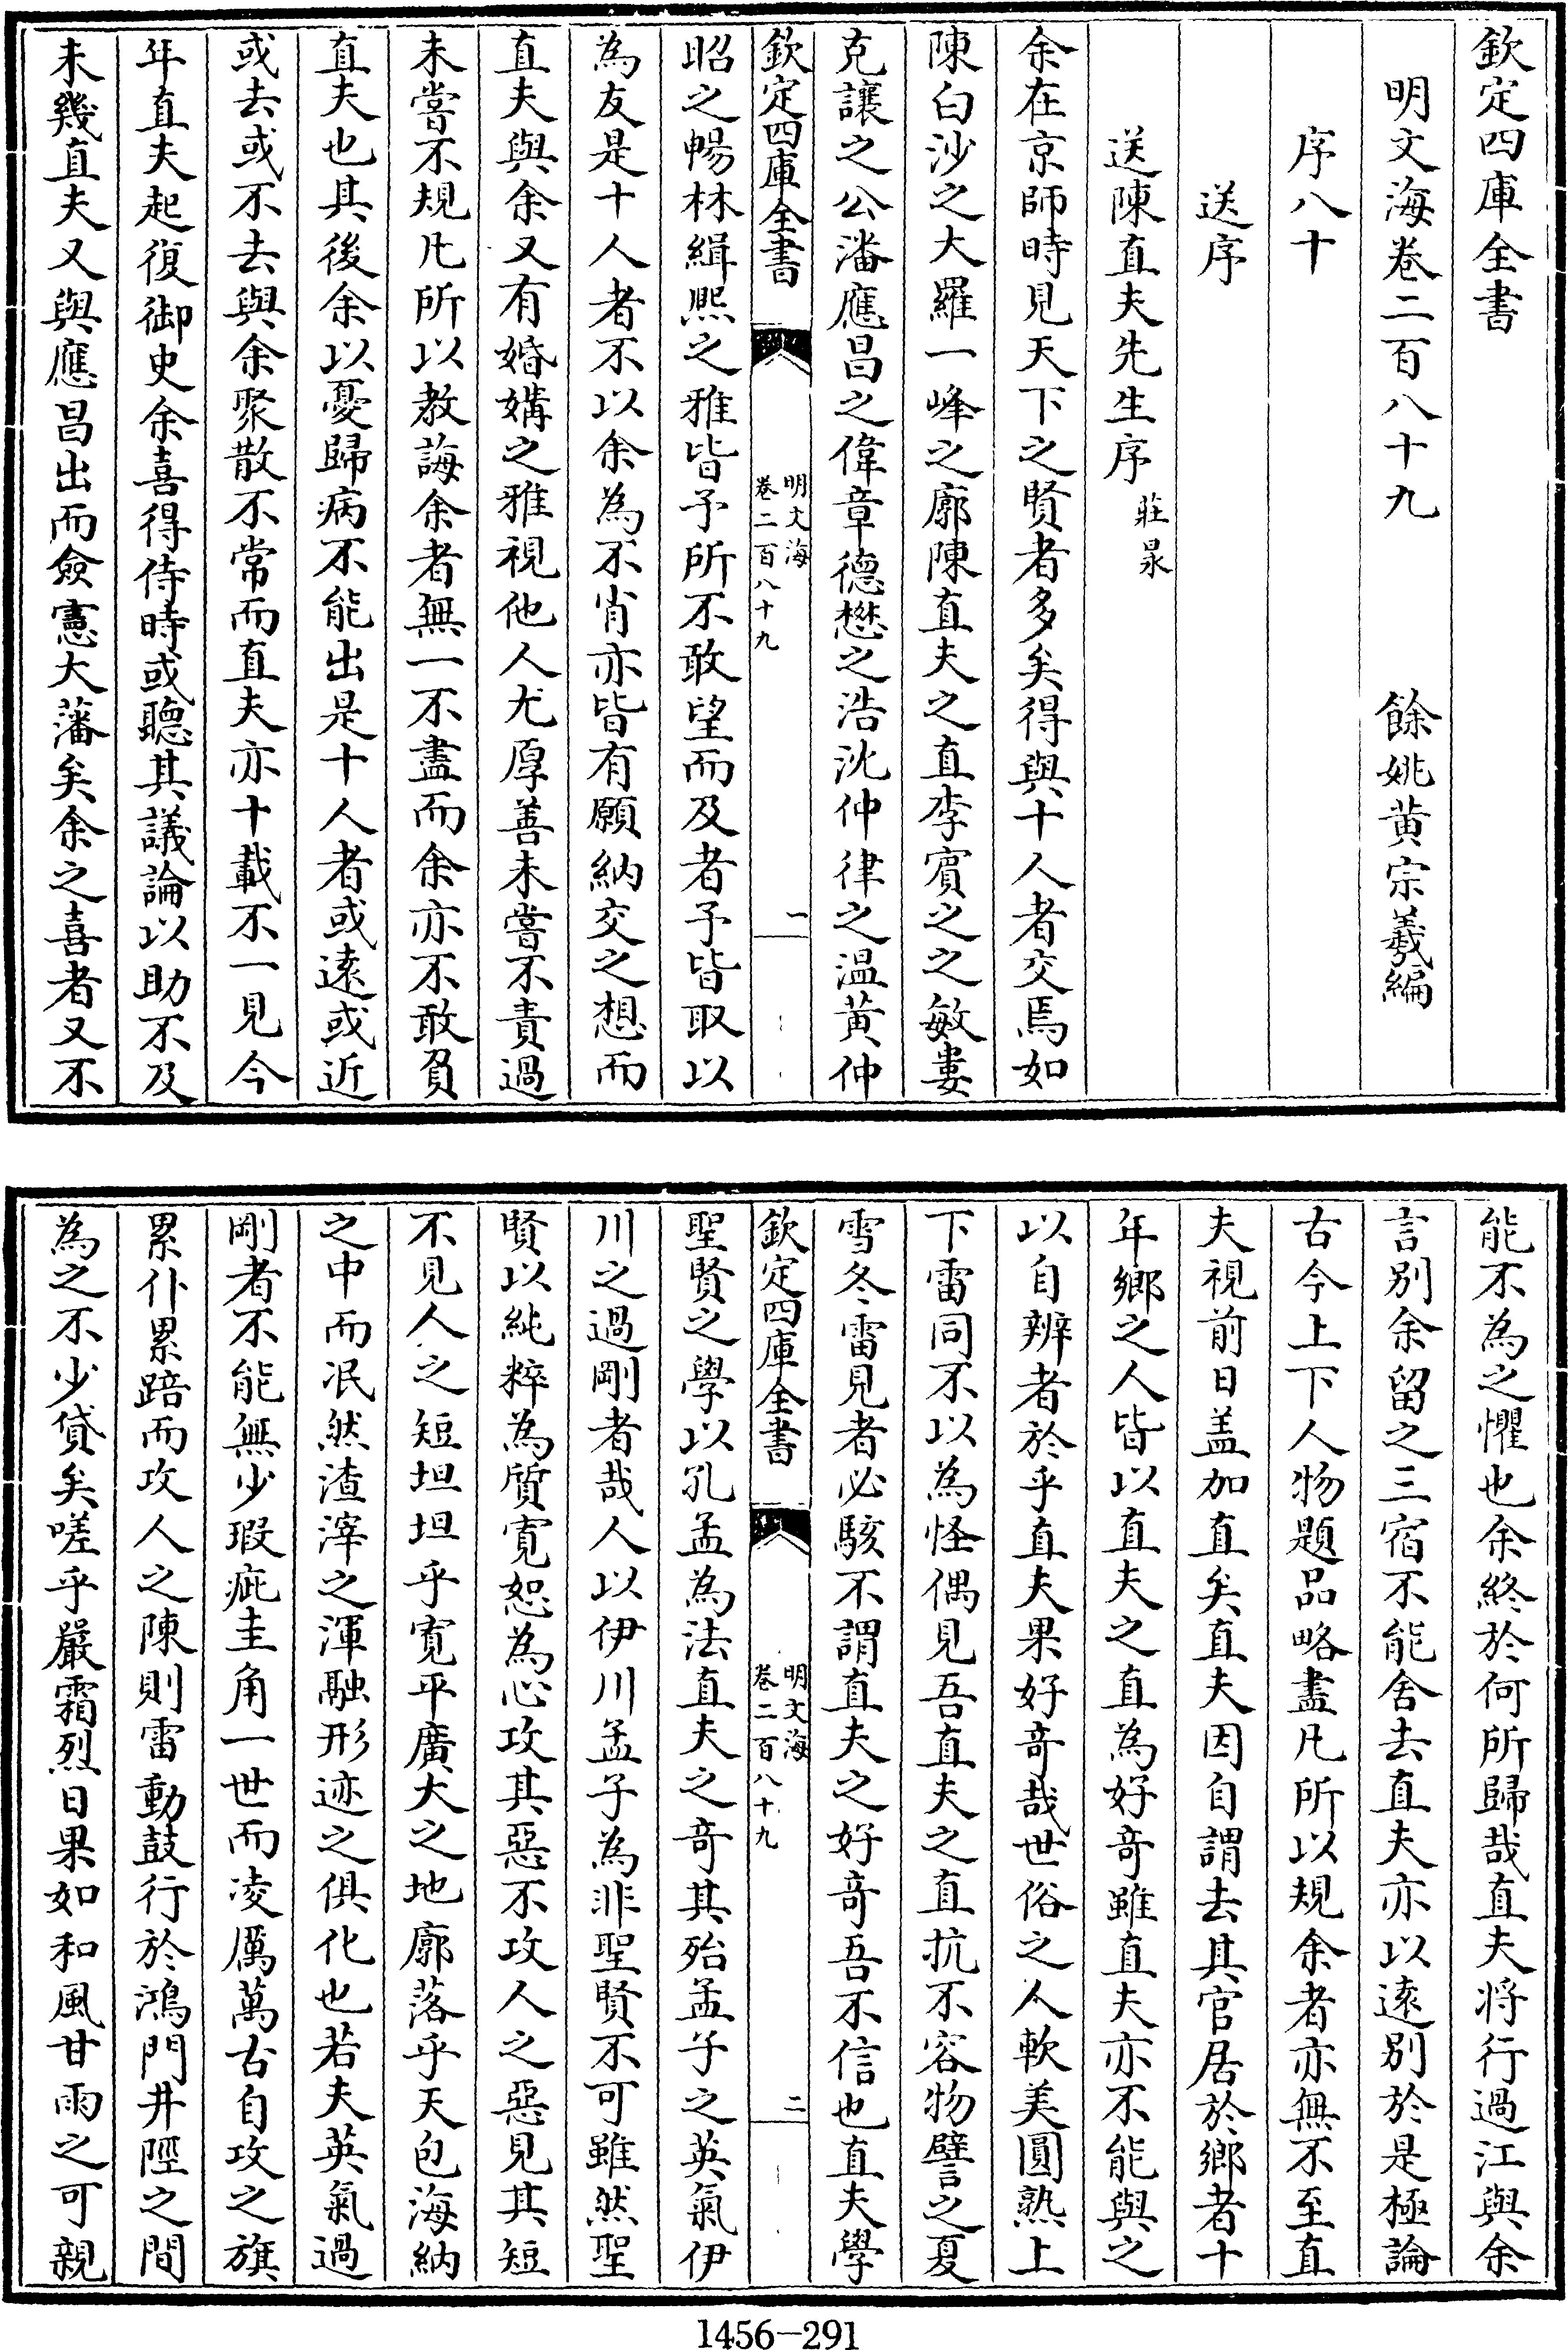 欽定四庫全書
明文海卷二百八十九　餘姚黄宗羲編
序八十
送序
送陳直夫先生序莊㫤
余在京師時見天下之賢者多矣得與十人者交焉如
陳白沙之大羅一峰之廓陳直夫之直李賓之之敏婁
克讓之公潘應昌之偉章德懋之浩沈仲律之温黄仲
欽定四庫全書
明文海
卷二百八十九
一
昭之暢林緝熙之雅皆予所不敢望而及者予皆取以
為友是十人者不以余為不肖亦皆有願納交之想而
直夫與余又有婚媾之雅視他人尤厚善未嘗不責過
未嘗不規凡所以教誨余者無一不盡而余亦不敢負
直夫也其後余以憂歸病不能出是十人者或逺或近
或去或不去與余聚散不常而直夫亦十載不一見今
年直夫起復御史余喜得侍時或聽其議論以助不及
未幾直夫又與應昌出而僉憲大藩矣余之喜者又不
能不為之懼也余終於何所歸哉直夫将行過江與余
言别余留之三宿不能舍去直夫亦以逺别於是極論
古今上下人物題品略盡凡所以規余者亦無不至直
夫視前日盖加直矣直夫因自謂去其官居於鄉者十
年鄉之人皆以直夫之直為好奇雖直夫亦不能與之
以自辨者於乎直夫果好奇哉世俗之人軟美圓熟上
下雷同不以為怪偶見吾直夫之直抗不容物譬之夏
雪冬雷見者必駭不謂直夫之好奇吾不信也直夫學
欽定四庫全書
明文海
卷二百八十九
二
聖賢之學以孔孟為法直夫之奇其殆孟子之英氣伊
川之過剛者哉人以伊川孟子為非聖賢不可雖然聖
賢以純粹為質寛恕為心攻其惡不攻人之惡見其短
不見人之短坦坦乎寛平廣大之地廓落乎天包海納
之中而泯然渣滓之渾融形迹之俱化也若夫英氣過
剛者不能無少瑕疵圭角一世而凌厲萬古自攻之旗
累仆累踣而攻人之陳則雷動鼓行於鴻門井陘之間
為之不少貸矣嗟乎嚴霜烈日果如和風甘雨之可親
1456-291